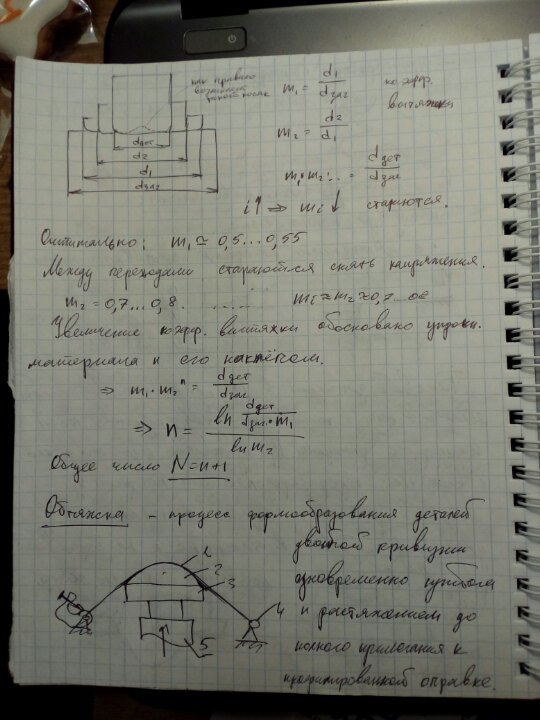 как правило
возникает
m₁ = d₁/dзаг коэфф. вытяжки
m₂ = d₂/d₁
dдет
d₂
d₁
dзаг
m₁·m₂... = dдет/dзаг
i↑ ⇒ mᵢ↓ стараются.
Оптимально: m₁ ≃ 0,5...0,55
Между переходами стараются снять напряжения.
m₂ = 0,7...0,8. ...... mᵢ ≈ m₂ ≈ 0,7...0,8
Увеличение коэфф. вытяжки обосновано упрочн.
материала и его наклёпом.
⇒ m₁·m₂ⁿ = dдет/dзаг
⇒ n = ln (dдет/(dзаг·m₁)) / ln m₂
Общее число N = n+1
Обтяжка - процесс формообразования деталей
двойной кривизны
одновременно гибкой
и растяжением до
полного прилегания к
профилированной оправке.
1
2
3
4
5